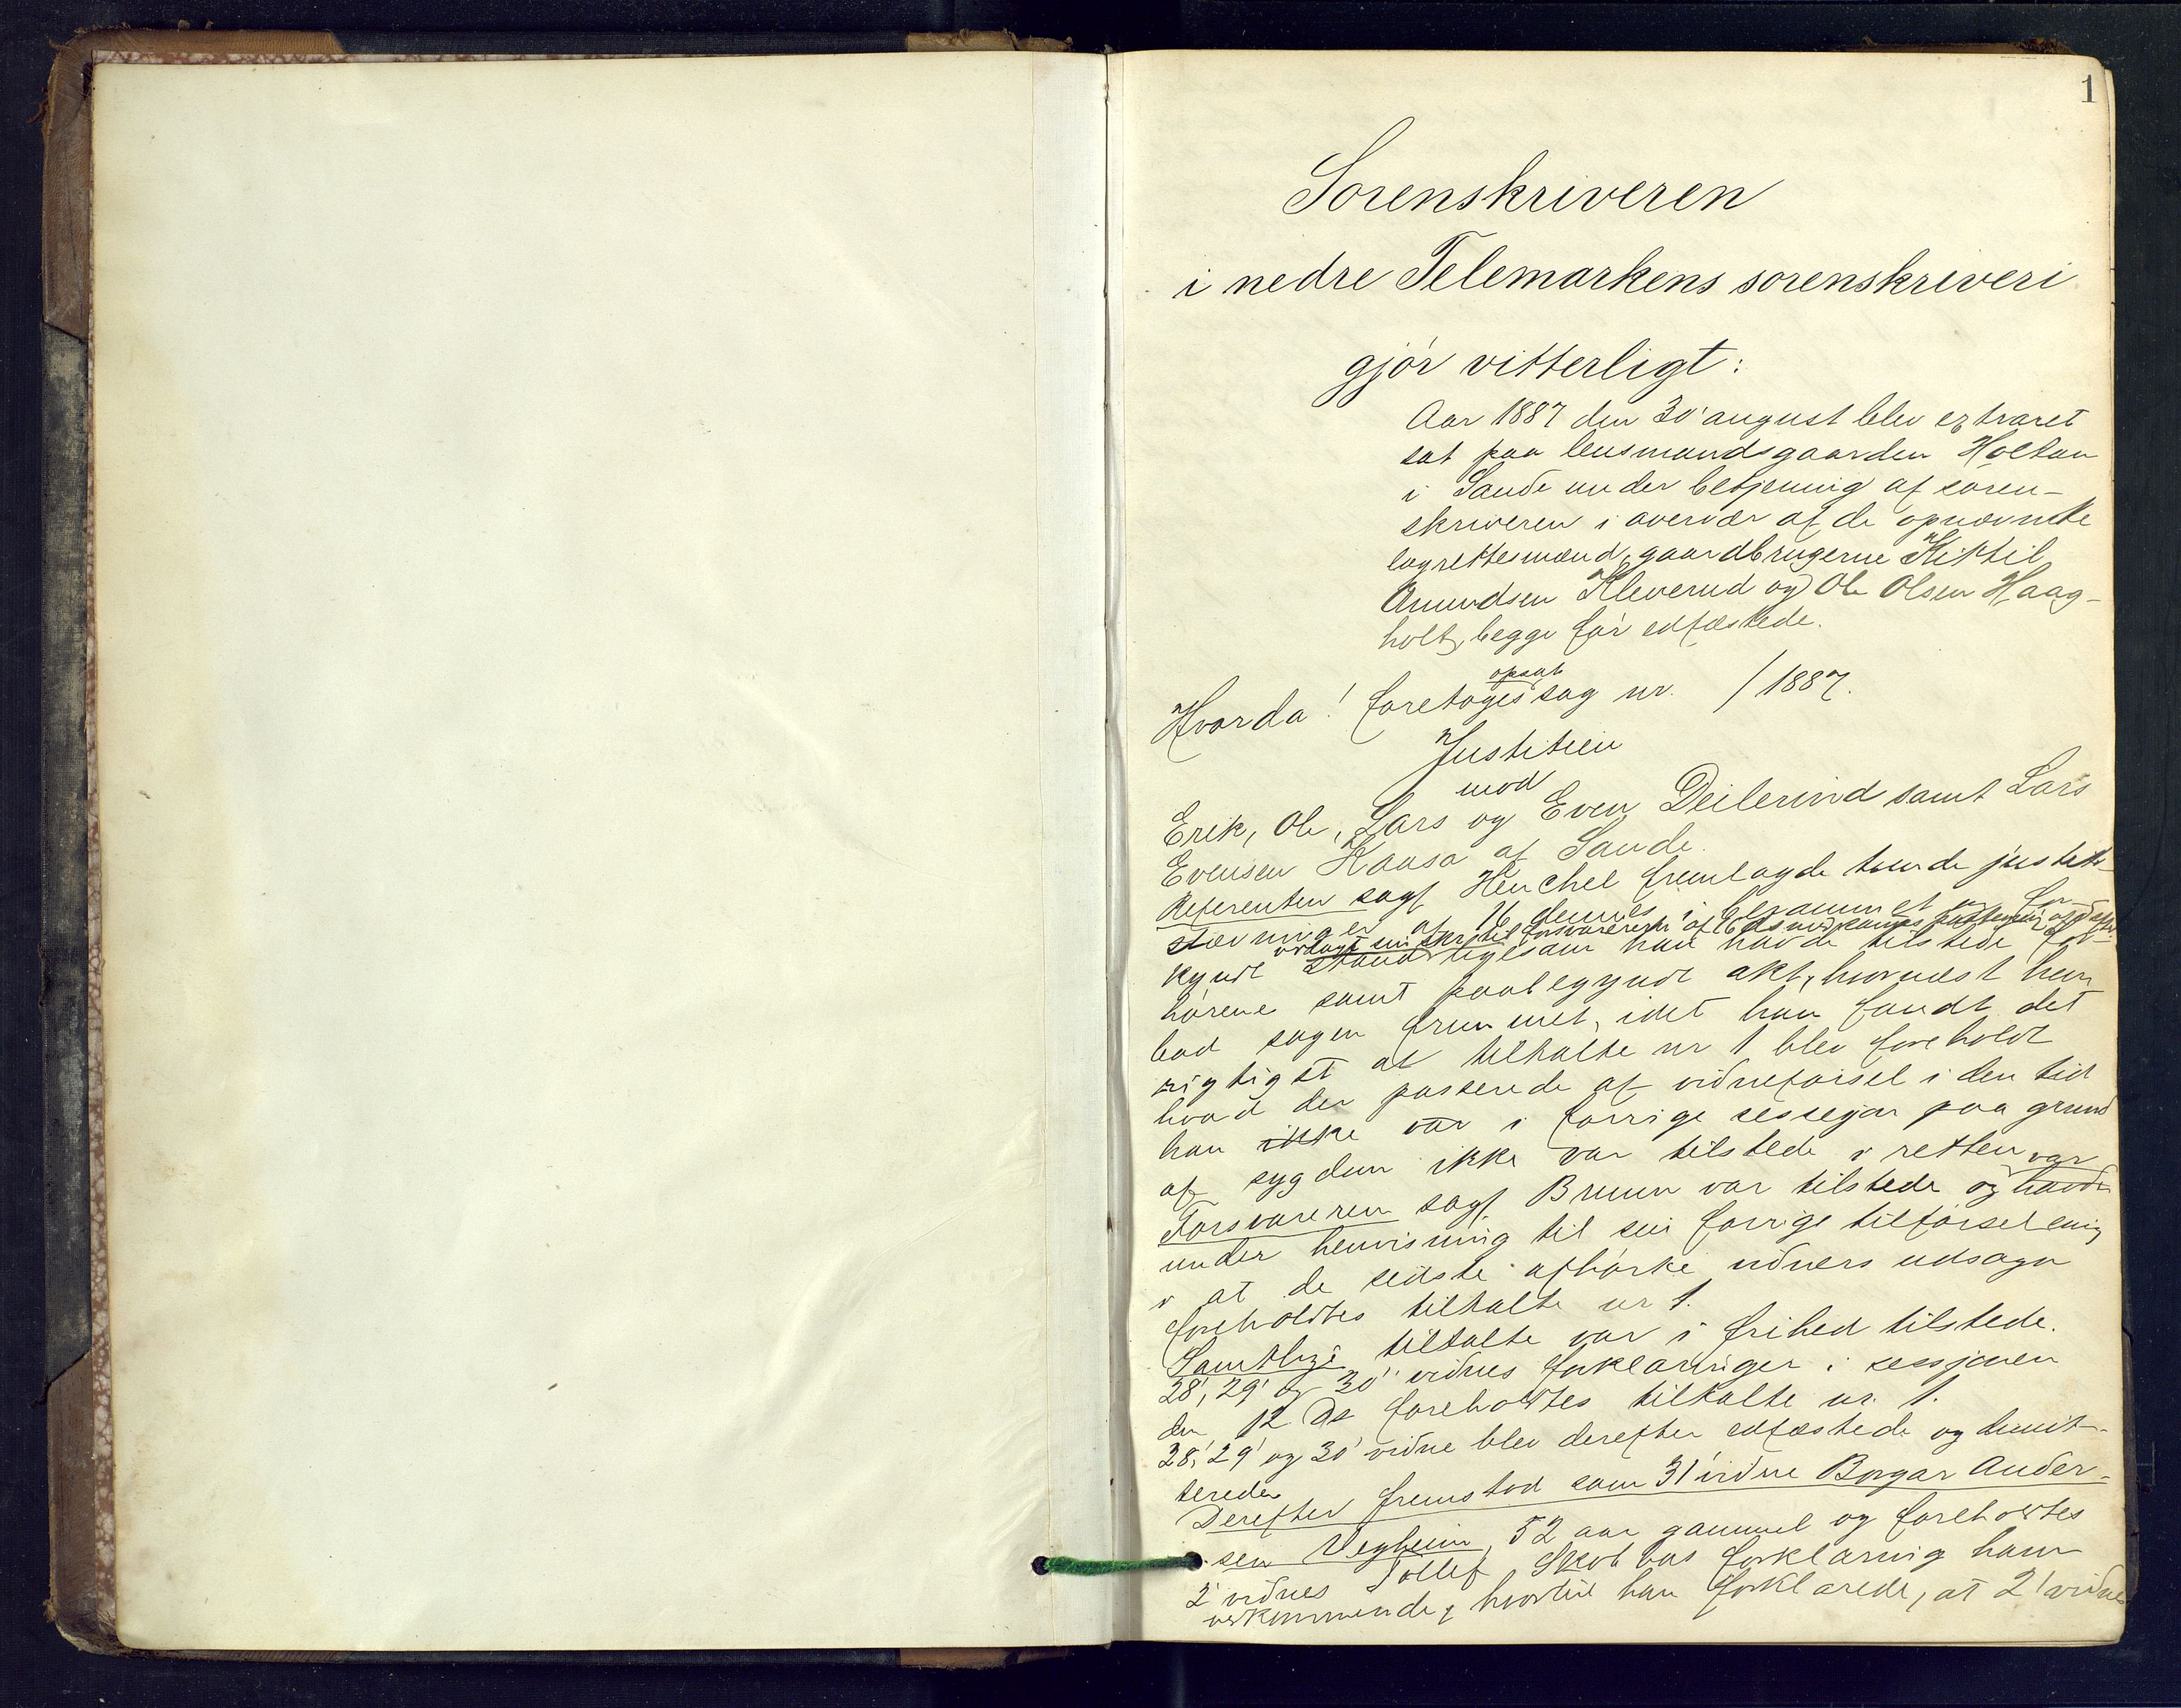 1
Sorenskriveren
i nedre Telemarkens sorenskriveri
gjør vitterligt:
Aar 1887 den 30' august blev extraret
sat paa lensmandsgaarden Holtan
i Saude under betjening af soren-
skriveren i overvær af de opnævnte
lagrettesmænd, gaardbrugerne Kittil
Amundsen Kleverud og Ole Olsen Haag-
holt, begge før edfæstede.
opsat
Hvorda! foretoges sag nr. /1887.
Justitien
mod
Erik, Ole, Lars og Even Deilerind samt Lars
Evensen Kaasa af Saude.
Referenten sagf Henchel fremlagde tvende justits-
stævninger af 16 dennes i berammet og for-
kyndt stand ligesom han havde tilstede for-
hørene samt paabegyndt akt, hvornæst han
bad sagen fremmet, idet han fandt det
rigtigst at tiltalte nr 1 blev foreholdt
hvad der passerede af vidneførsel i den tid
han ikke var i forrige sessjon paa grund
af sygdom ikke var tilstede i retten
var
Forsvareren sagf. Bruun var tilstede og havde
under henvisning til sin forrige tilførsel enig
i at de sidste afhørte vidners udsagn
foreholdtes tiltalte nr 1.
Samtlige tiltalte var i frihed tilstede.
28', 29' og 30' vidnes forklaringer i sessjonen
den 12 ds foreholdtes tiltalte nr. 1.
28', 29' og 30' vidne blev derefter edfæstede og dimit-
terede.
Derefter fremstod som 31' vidne Borgar Ander-
sen Vegheim, 52 aar gammel og foreholdtes
2' vidnes Tollef Skotvas forklaring ham
vedkommende, hvortil han forklarede, at 2' vidne